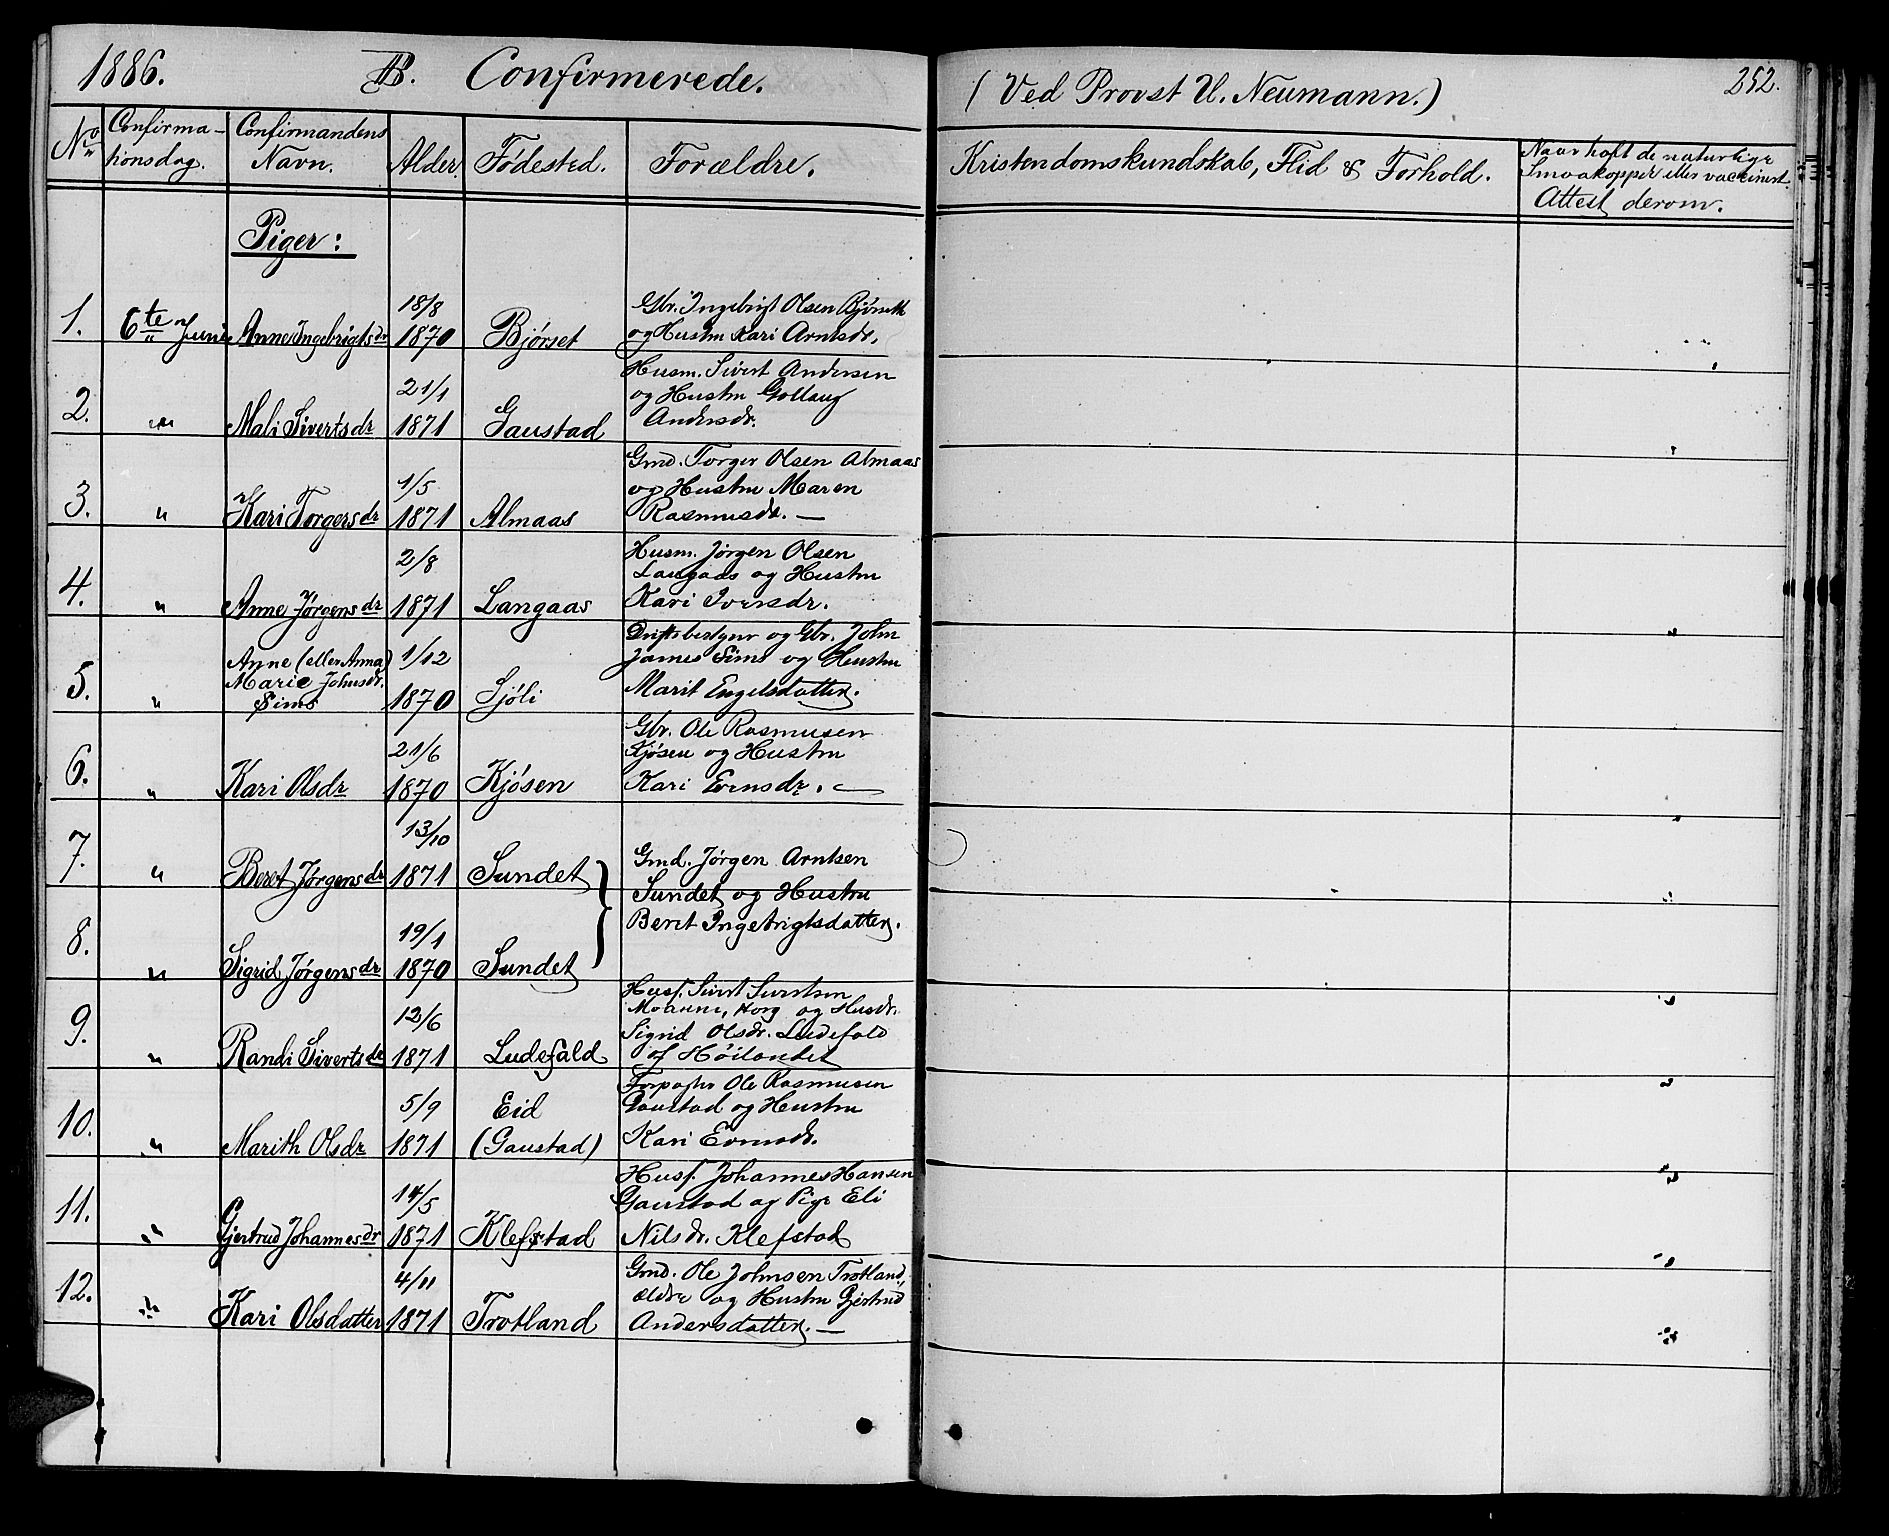 1886. B. Confirmerede. (Ved Provst U. Neumann.) 252.
No Confirma- Confirmandens Alder. Fødested. Forældre. Kristendomskundskab, Flid & Forhold. Naar haft de naturlige
tionsdag. Navn. Smaakopper eller vaccineret.
Attest derom.
Piger:
18/8 Gbr. Ingebrigt Olsen Bjørseth
1. 6te Juni Anne Ingebrigtsdr 1870 Bjørset og Hustru Kari Arntsdr.
Husm. Sivert Andersen
21/1 og Hustru Gollaug
2. " Mali Sivertsdr 1871 Gaustad Andersdr.
Gmd. Torger Olsen Almaas
1/5 og Hustru Maren
3. " Kari Torgersdr 1871 Almaas Rasmusdr. —
Husm. Jørgen Olsen
2/8 Langaas og Hustru
4. " Anne Jørgensdr 1871 Langaas Kari Iversdr.
Driftsbestyrer og Gbr. John
Anne (eller Anna) 1/12 James Sims og Hustru
5. " Marie Johnsdr. 1870 Sjöli Marit Engelsdatter.
Sims
Gbr. Ole Rasmusen
21/6 Kjøsen og Hustru
6. " Kari Olsdr 1870 Kjósen Kari Evensdr. —
13/10
7. " Beret Jørgensdr 1871 Sundet Gmd. Jørgen Arntsen
Sundet og Hustru
19/1 Beret Ingebrigtsdatter.
8. " Sigrid Jørgensdr 1870 Sundet
Husf. Sivert Sivertsen
12/6 Moarne, Horg og Husdr.
Sigrid Olsdr. Ludefald
9. " Randi Sivertsdr 1871 Ludefald af Höilandet
Forpagter Ole Rasmusen
5/9 Eid Gaustad og Hustru
10. " Marith Olsdr 1871 (Gaustad) Kari Evensdr.
Husf. Johannes Hansen
14/5 Gaustad og Pige Eli
11. " Gjertrud Johannesdr 1871 Klefstad Nilsdr. Klefstad
Gmd. Ole Johnsen Trotland,
4/11 ældre og Hustru Gjertrud
12. " Kari Olsdatter 1871 Trotland Andersdatter. —